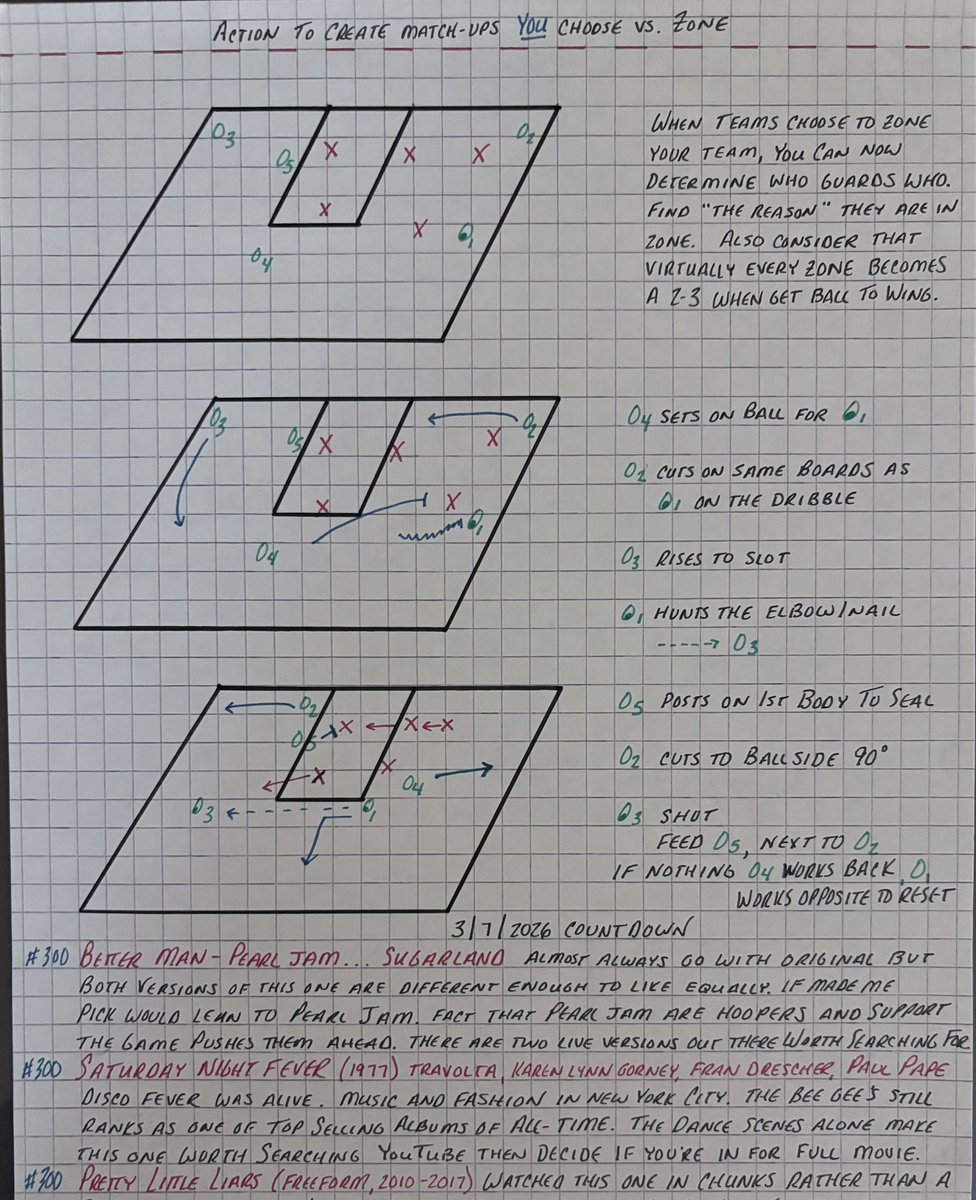 ACTION TO CREATE MATCH-UPS YOU CHOOSE VS. ZONE
O3 O5 X X X O2
X X O1
O4
WHEN TEAMS CHOOSE TO ZONE
YOUR TEAM, YOU CAN NOW
DETERMINE WHO GUARDS WHO.
FIND "THE REASON" THEY ARE IN
ZONE. ALSO CONSIDER THAT
VIRTUALLY EVERY ZONE BECOMES
A 2-3 WHEN GET BALL TO WING.
O3 O5 X X X O2
X X O1
O4
O4 SETS ON BALL FOR O1
O2 CUTS ON SAME BOARDS AS
O1 ON THE DRIBBLE
O3 RISES TO SLOT
O1 HUNTS THE ELBOW/NAIL
----→ O3
O2
O5 X X X
X X O4
O3 O1
O5 POSTS ON 1ST BODY TO SEAL
O2 CUTS TO BALLSIDE 90°
O3 SHOT
FEED O5, NEXT TO O2
IF NOTHING O4 WORKS BACK, O1
WORKS OPPOSITE TO RESET
3/7/2026 COUNTDOWN
#300 BETTER MAN - PEARL JAM... SUGARLAND ALMOST ALWAYS GO WITH ORIGINAL BUT
BOTH VERSIONS OF THIS ONE ARE DIFFERENT ENOUGH TO LIKE EQUALLY. IF MADE ME
PICK WOULD LEAN TO PEARL JAM. FACT THAT PEARL JAM ARE HOOPERS AND SUPPORT
THE GAME PUSHES THEM AHEAD. THERE ARE TWO LIVE VERSIONS OUT THERE WORTH SEARCHING FOR
#300 SATURDAY NIGHT FEVER (1977) TRAVOLTA, KAREN LYNN GORNEY, FRAN DRESCHER, PAUL PAPE
DISCO FEVER WAS ALIVE. MUSIC AND FASHION IN NEW YORK CITY. THE BEE GEE'S STILL
RANKS AS ONE OF TOP SELLING ALBUMS OF ALL-TIME. THE DANCE SCENES ALONE MAKE
THIS ONE WORTH SEARCHING YOUTUBE THEN DECIDE IF YOU'RE IN FOR FULL MOVIE.
#300 PRETTY LITTLE LIARS (FREEFORM, 2010-2017) WATCHED THIS ONE IN CHUNKS RATHER THAN A